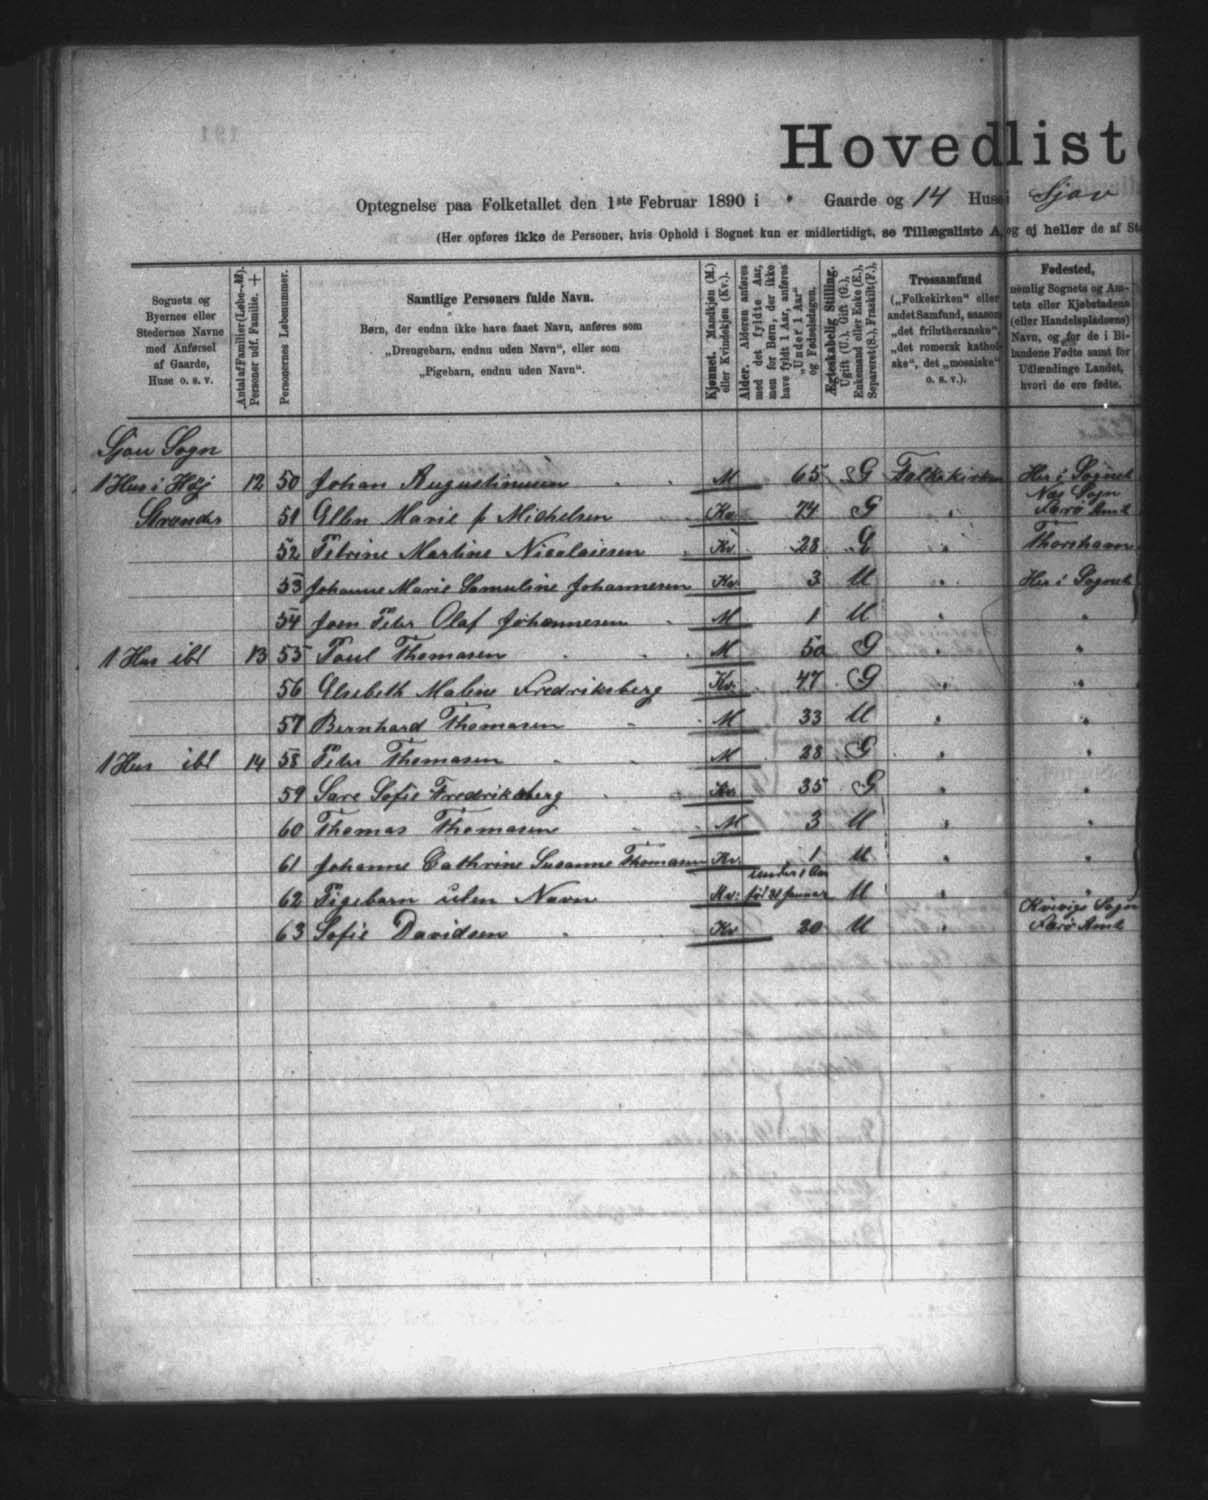 Hovedliste
Optegnelse paa Folketallet den 1ste Februar 1890 i " Gaarde og 14 Huse i Sjov
(Her opføres ikke de Personer, hvis Ophold i Sognet kun er midlertidigt, se Tillægsliste A, og ej heller de af
Sognets og Byernes eller Stedernes Navne med Anførsel af Gaarde, Huse o. s. v.
Antal af Familier (Løbe-№). Personer udf. Familie. +
Personernes Løbenummer.
Samtlige Personers fulde Navn.
Børn, der endnu ikke have faaet Navn, anføres som
„Drengebarn, endnu uden Navn“, eller som
„Pigebarn, endnu uden Navn“.
Kjønnet. Mandkjøn (M.) eller Kvindekjøn (Kv.).
Alder. Alderen anføres med det fyldte Aar, men for Børn, der ikke have fyldt 1 Aar, anføres „Under 1 Aar“ og Fødselsdagen.
Ægteskabelig Stilling. Ugift (U.), Gift (G.), Enkemand eller Enke (E.), Separeret (S.), Fraskilt (F.).
Trossamfund
(„Folkekirken“ eller andet Samfund, saasom „det frilutheranske“, „det romersk katholske“, det „mosaiske“ o. s. v.).
Fødested,
nemlig Sognets og Amtets eller Kjøbstadens (eller Handelspladsens) Navn, og for de i Bilandene Fødte samt for Udlændinge Landet, hvori de ere fødte.
Sjov Sogn
1 Hus i 12 50 Johan Augustinussen M 65 G Folkekirken Her i Sognet
Strender 51 Ellen Marie f Michelsen Kv 74 G " Næs Sogn Færø Amt
52 Petrine Martine Nicolaisen Kv 28 " Thorshavn
53 Johanne Marie Samuline Johannesen Kv 3 U " Her i Sognet
54 Joen Peter Olaf Johannesen M 1 U " "
1 Hus ibl 13 55 Poul Thomasen M 50 G " "
56 Elsebeth Maline Fredriksberg Kv. 47 G " "
57 Bernhard Thomasen M 33 U " "
1 Hus ibl 14 58 Peter Thomasen M 28 G " "
59 Sare Sofie Fredriksberg Kv 35 G " "
60 Thomas Thomasen M 3 U " "
61 Johanne Cathrine Susanne Thomasen Kv 1 U " "
62 Pigebarn uden Navn Kv: under 1 Aar fød 21 Januar U " "
63 Sofie Davidsen Kv 20 U " Kvivigs Sogn Færø Amt